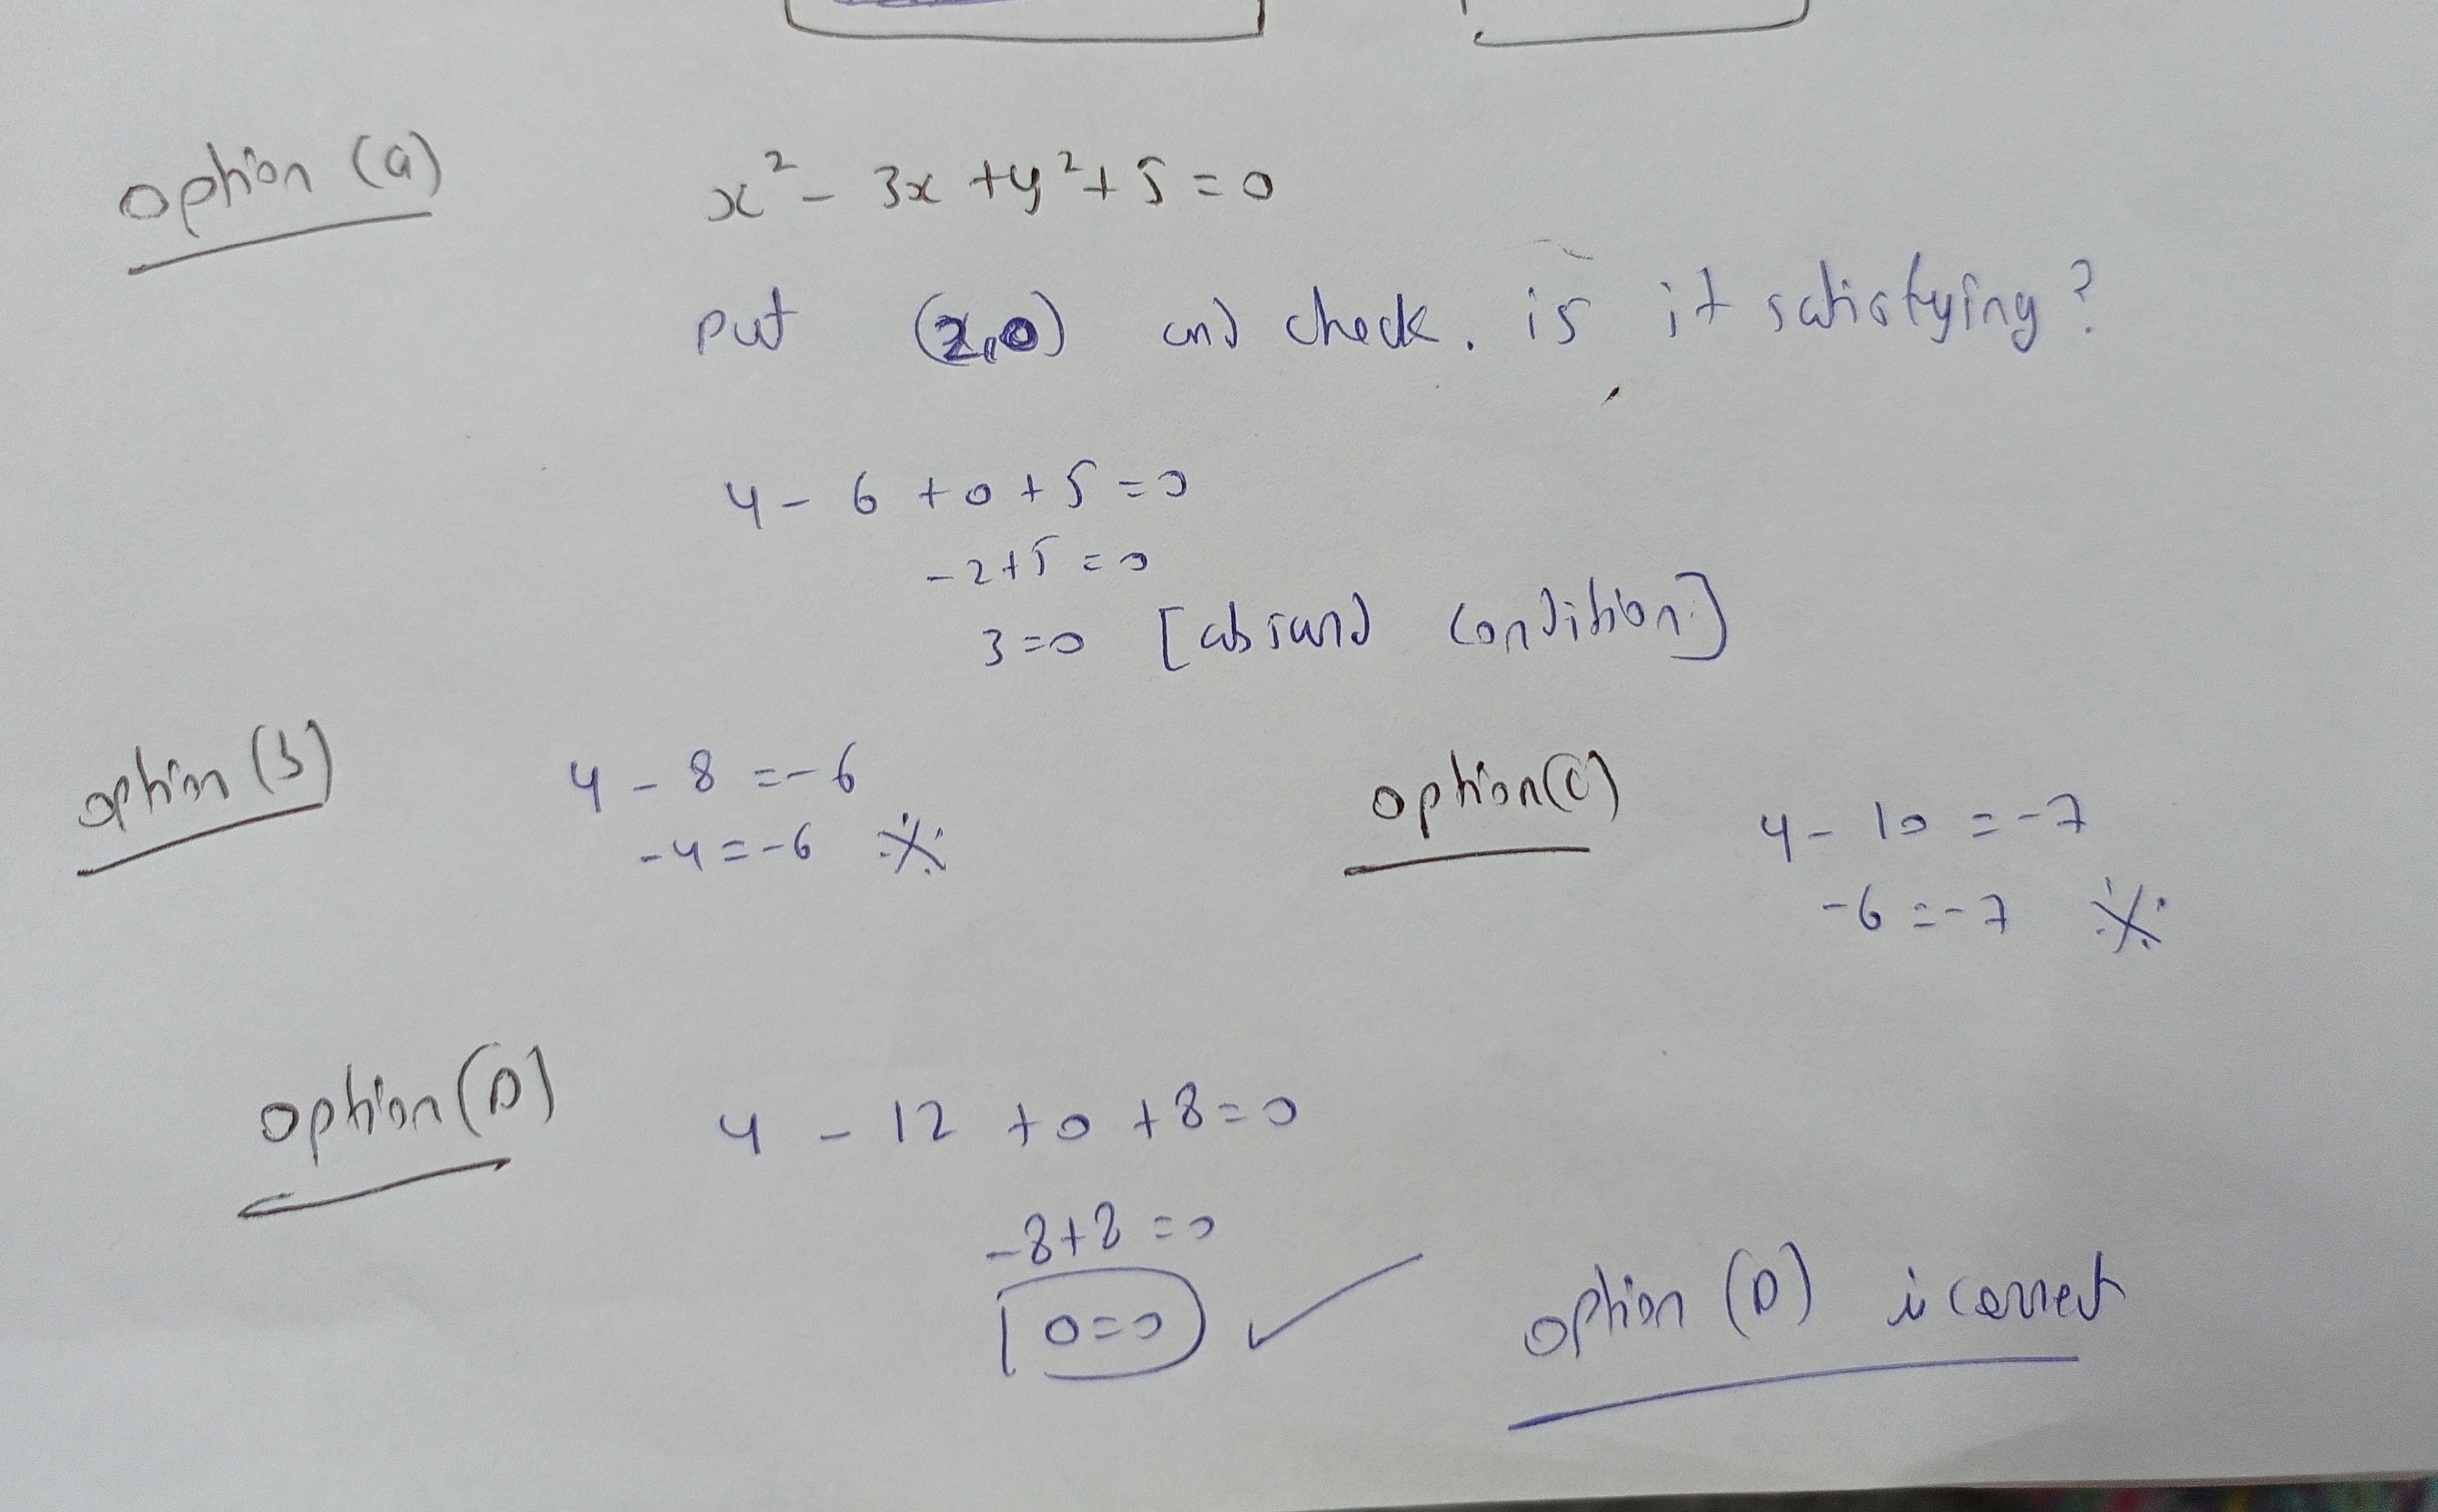 option (a)
x² - 3x + y² + 5 = 0
put (2,0) and check. is it satisfying?
4 - 6 + 0 + 5 = 0
-2+5 = 0
3 = 0 [absurd condition]
option (b)
4 - 8 = -6
-4 = -6
option(C)
4 - 10 = -7
-6 = -7
option (D)
4 - 12 + 0 + 8 = 0
-8+8 = 0
0=0 ✓
option (D) is correct